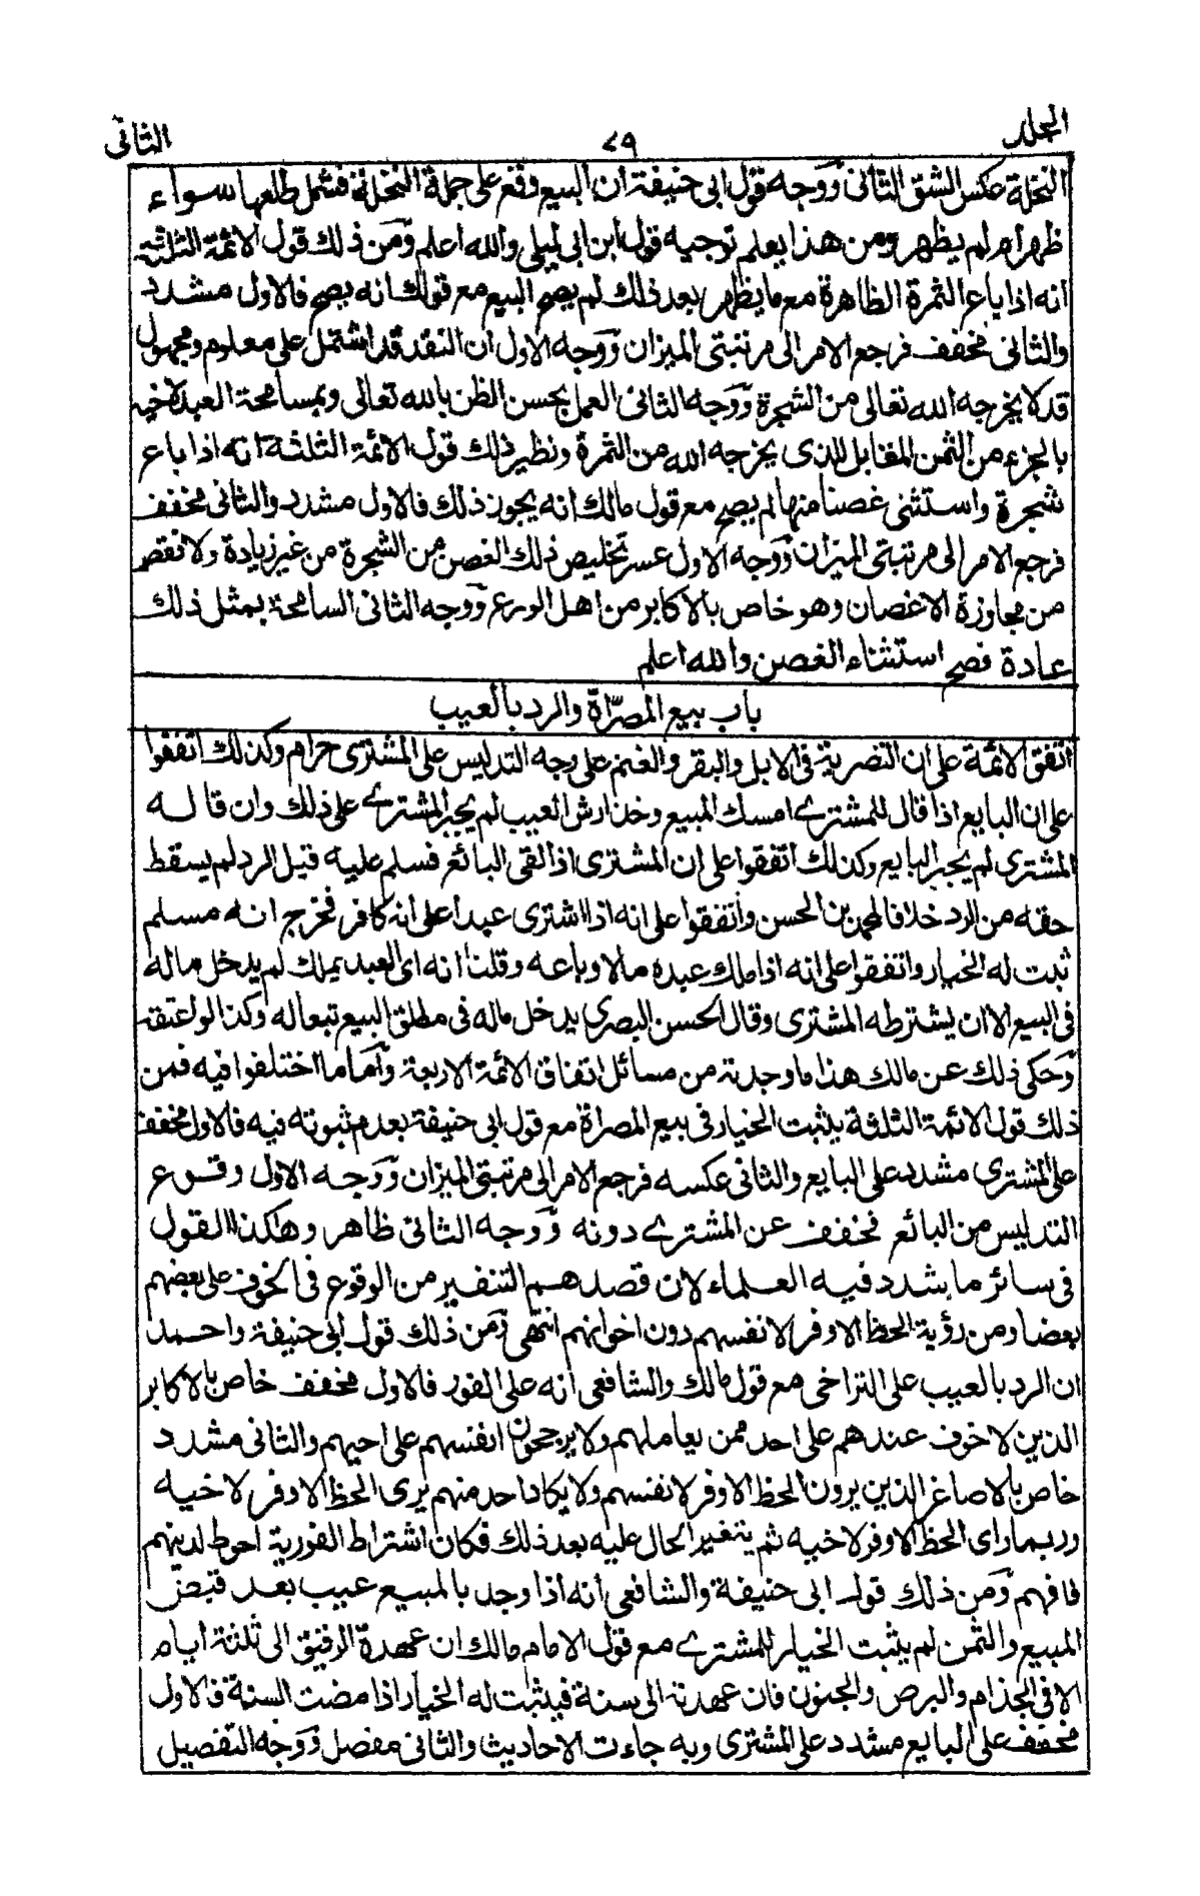 المجلد
٧٩
الثانى
النخلة عكس الشق الثانى ووجه قول ابى حنيفة ان البيع وقع على جملة النخلة فشمل طلعها سواء
ظهر ام لم يظهر ومن هذا يعلم توجيه قول ابن ابى ليلى والله اعلم ومن ذلك قول الائمة الثلثة
انه اذا باع الثمرة الظاهرة مع ما يظهر بعد ذلك لم يصح البيع مع قول مالك انه يصح فالاول مشدد
والثانى مخفف فرجع الامر الى مرتبتى الميزان ووجه الاول ان النقد قد اشتمل على معلوم ومجهول
قد لا يخرجه الله تعالى من الشجرة ووجه الثانى العمل بحسن الظن بالله تعالى وبمسامحة العبد لاخيه
بالجزء من الثمن المقابل للذى يخرجه الله من الثمرة ونظير ذلك قول الائمة الثلثة انه اذا باع
شجرة واستثنى غصنا منها لم يصح مع قول مالك انه يجوز ذلك فالاول مشدد والثانى مخفف
فرجع الامر الى مرتبتى الميزان ووجه الاول عسر تخليص ذلك الغصن من الشجرة من غير زيادة ولا نقص
من مجاوزة الاغصان وهو خاص بالاكابر من اهل الورع ووجه الثانى السامحة بمثل ذلك
عادة فصح استثناء الغصن والله اعلم
باب بيع المصرّاة والرد بالعيب
اتفق الائمة على ان التصرية فى الابل والبقر والغنم على وجه التدليس على المشترى حرام وكذلك اتفقوا
على ان البايع اذا قال للمشترى امسك المبيع وخذ ارش العيب لم يجبر المشترى على ذلك وان قاله
المشترى لم يجبر البايع وكذلك اتفقوا على ان المشترى اذا لقى البائع فسلم عليه قبل الرد لم يسقط
حقه من الرد خلافا لمحمد بن الحسن واتفقوا على انه اذا اشترى عبدا على انه كافر فخرج انه مسلم
ثبت له الخيار واتفقوا على انه اذا ملك عبده مالا وباعه وقلنا انه اى العبد يملك لم يدخل ماله
فى البيع الا ان يشترطه المشترى وقال الحسن البصرى يدخل ماله فى مطلق البيع تبعا له وكذا لو اعتقه
وحكى ذلك عن مالك هذا ما وجدته من مسائل اتفاق الائمة الاربعة وأما ما اختلفوا فيه فمن
ذلك قول الائمة الثلثة يثبت الخيار فى بيع المصراة مع قول ابى حنيفة بعدم ثبوته فيه فالاول مخفف
على المشترى مشدد على البايع والثانى عكسه فرجع الامر الى مرتبتى الميزان ووجه الاول وقوع
التدليس من البائع فخفف عن المشترى دونه ووجه الثانى ظاهر وهكذا القول
فى سائر ما يشدد فيه العلماء لان قصدهم التنفير من الوقوع فى الخوف على بعضهم
بعضا ومن رؤية الحظ الاوفر لانفسهم دون اخوانهم انتهى ومن ذلك قول ابى حنيفة واحمد
ان الرد بالعيب على التراخى مع قول مالك والشافعى انه على الفور فالاول مخفف خاص بالاكابر
الذين لا خوف عندهم على احد ممن يعاملهم ولا يرجحون انفسهم على اخيهم والثانى مشدد
خاص بالاصاغر الذين يرون الحظ الاوفر لانفسهم ولا يكاد احد منهم يرى الحظ الاوفر لاخيه
وربما راى الحظ الاوفر لاخيه ثم يتغير الحال عليه بعد ذلك فكان اشتراط الفورية احوط لدينهم
فافهم ومن ذلك قول ابى حنيفة والشافعى انه اذا وجد بالمبيع عيب بعد قبض
المبيع والثمن لم يثبت الخيار للمشترى مع قول الامام مالك ان عهدة الرقيق الى ثلثة ايام
الا فى الجذام والبرص والجنون فان عهدته الى سنة فيثبت له الخيار اذا مضت السنة فالاول
مخفف على البايع مشدد على المشترى وبه جاءت الاحاديث والثانى مفصل ووجه التفصيل